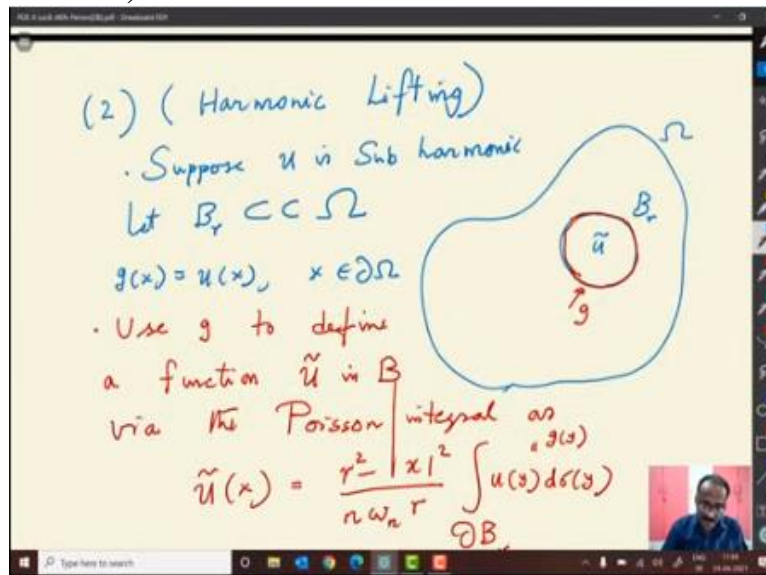 (2) ( Harmonic Lifting)
. Suppose u is Sub harmonic
Let B_r ⊂⊂ Ω
g(x) = u(x), x ∈ ∂Ω
. Use g to define
a function ũ in B
via the Poisson integral as
ũ(x) = (r² - |x|²)/(n ω_n r) ∫_{∂B_r} u(y) dσ(y)
= g(y)
Ω
B_r
ũ
g
Type here to search